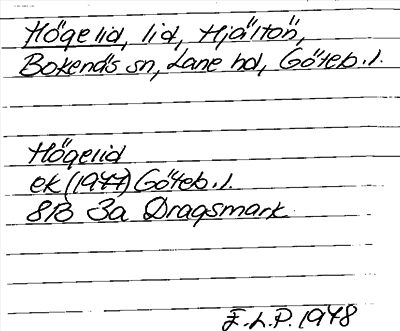 Högelid, lid, Hjältön,
Bokenäs sn, Lane hd, Göteb. l.
Högelid
ek (1977) Göteb. l.
8B 3a Dragsmark
E.L.P. 1978